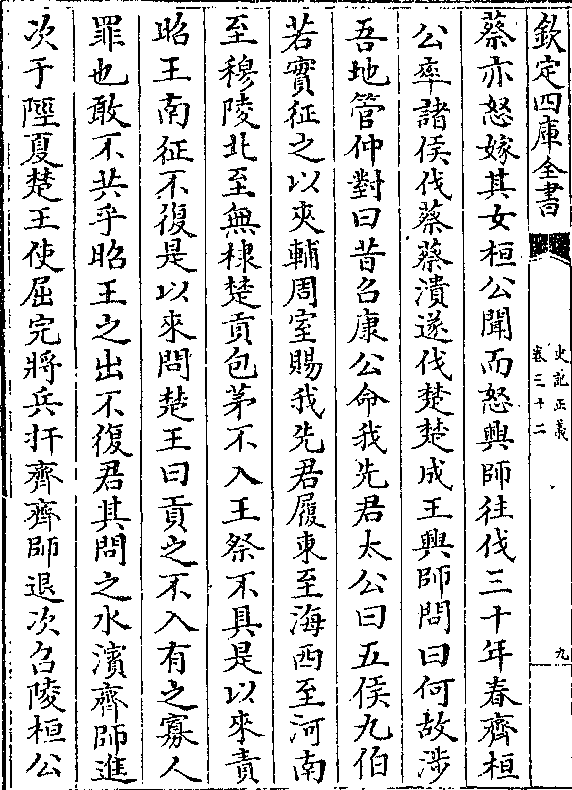 欽定四庫全書
史記正義
卷三十二
九
蔡亦怒嫁其女桓公聞而怒興師往伐三十年春齊桓
公率諸侯伐蔡蔡潰遂伐楚楚成王興師問曰何故涉
吾地管仲對曰昔召康公命我先君太公曰五侯九伯
若實征之以夾輔周室賜我先君履東至海西至河南
至穆陵北至無棣楚貢包茅不入王祭不具是以來責
昭王南征不復是以來問楚王曰貢之不入有之寡人
罪也敢不共乎昭王之出不復君其問之水濱齊師進
次于陘夏楚王使屈完將兵扞齊齊師退次召陵桓公